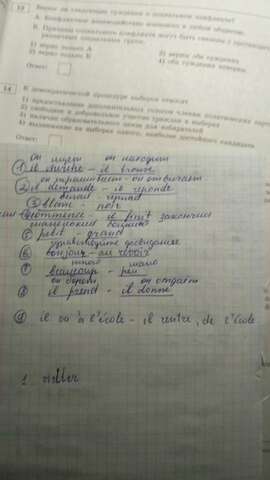 13 Верны ли следующие суждения о социальном конфликте?
А. Конфликтное взаимодействие возможно в любом обществе.
Б. Причины социального конфликта могут быть связаны с
различных социальных групп.
1) верно только А 3) верны оба суждения
2) верно только Б 4) оба суждения неверны
Ответ:
14 К демократической процедуре выборов относят
1) предоставление дополнительных голосов членам политических партий
2) свободное и добровольное участие граждан в выборах
3) наличие образовательного ценза для избирателей
4) выдвижение на выборах одного, наиболее достойного кандидата
Ответ:
он ищет он находит
1 il cherche - il trouve
он спрашивает - он отвечает
2 il demande - il reponde
3 blanc - noir
commence - il finit закончил
маленький большой
5 petit - grand
здравствуйте до свидания
6 bonjour - au revoir
много мало
7 beaucoup - peu
он берет он отдаёт
8 il prend - il donne
9 il va à l'école - il rentre de l'école.
1.